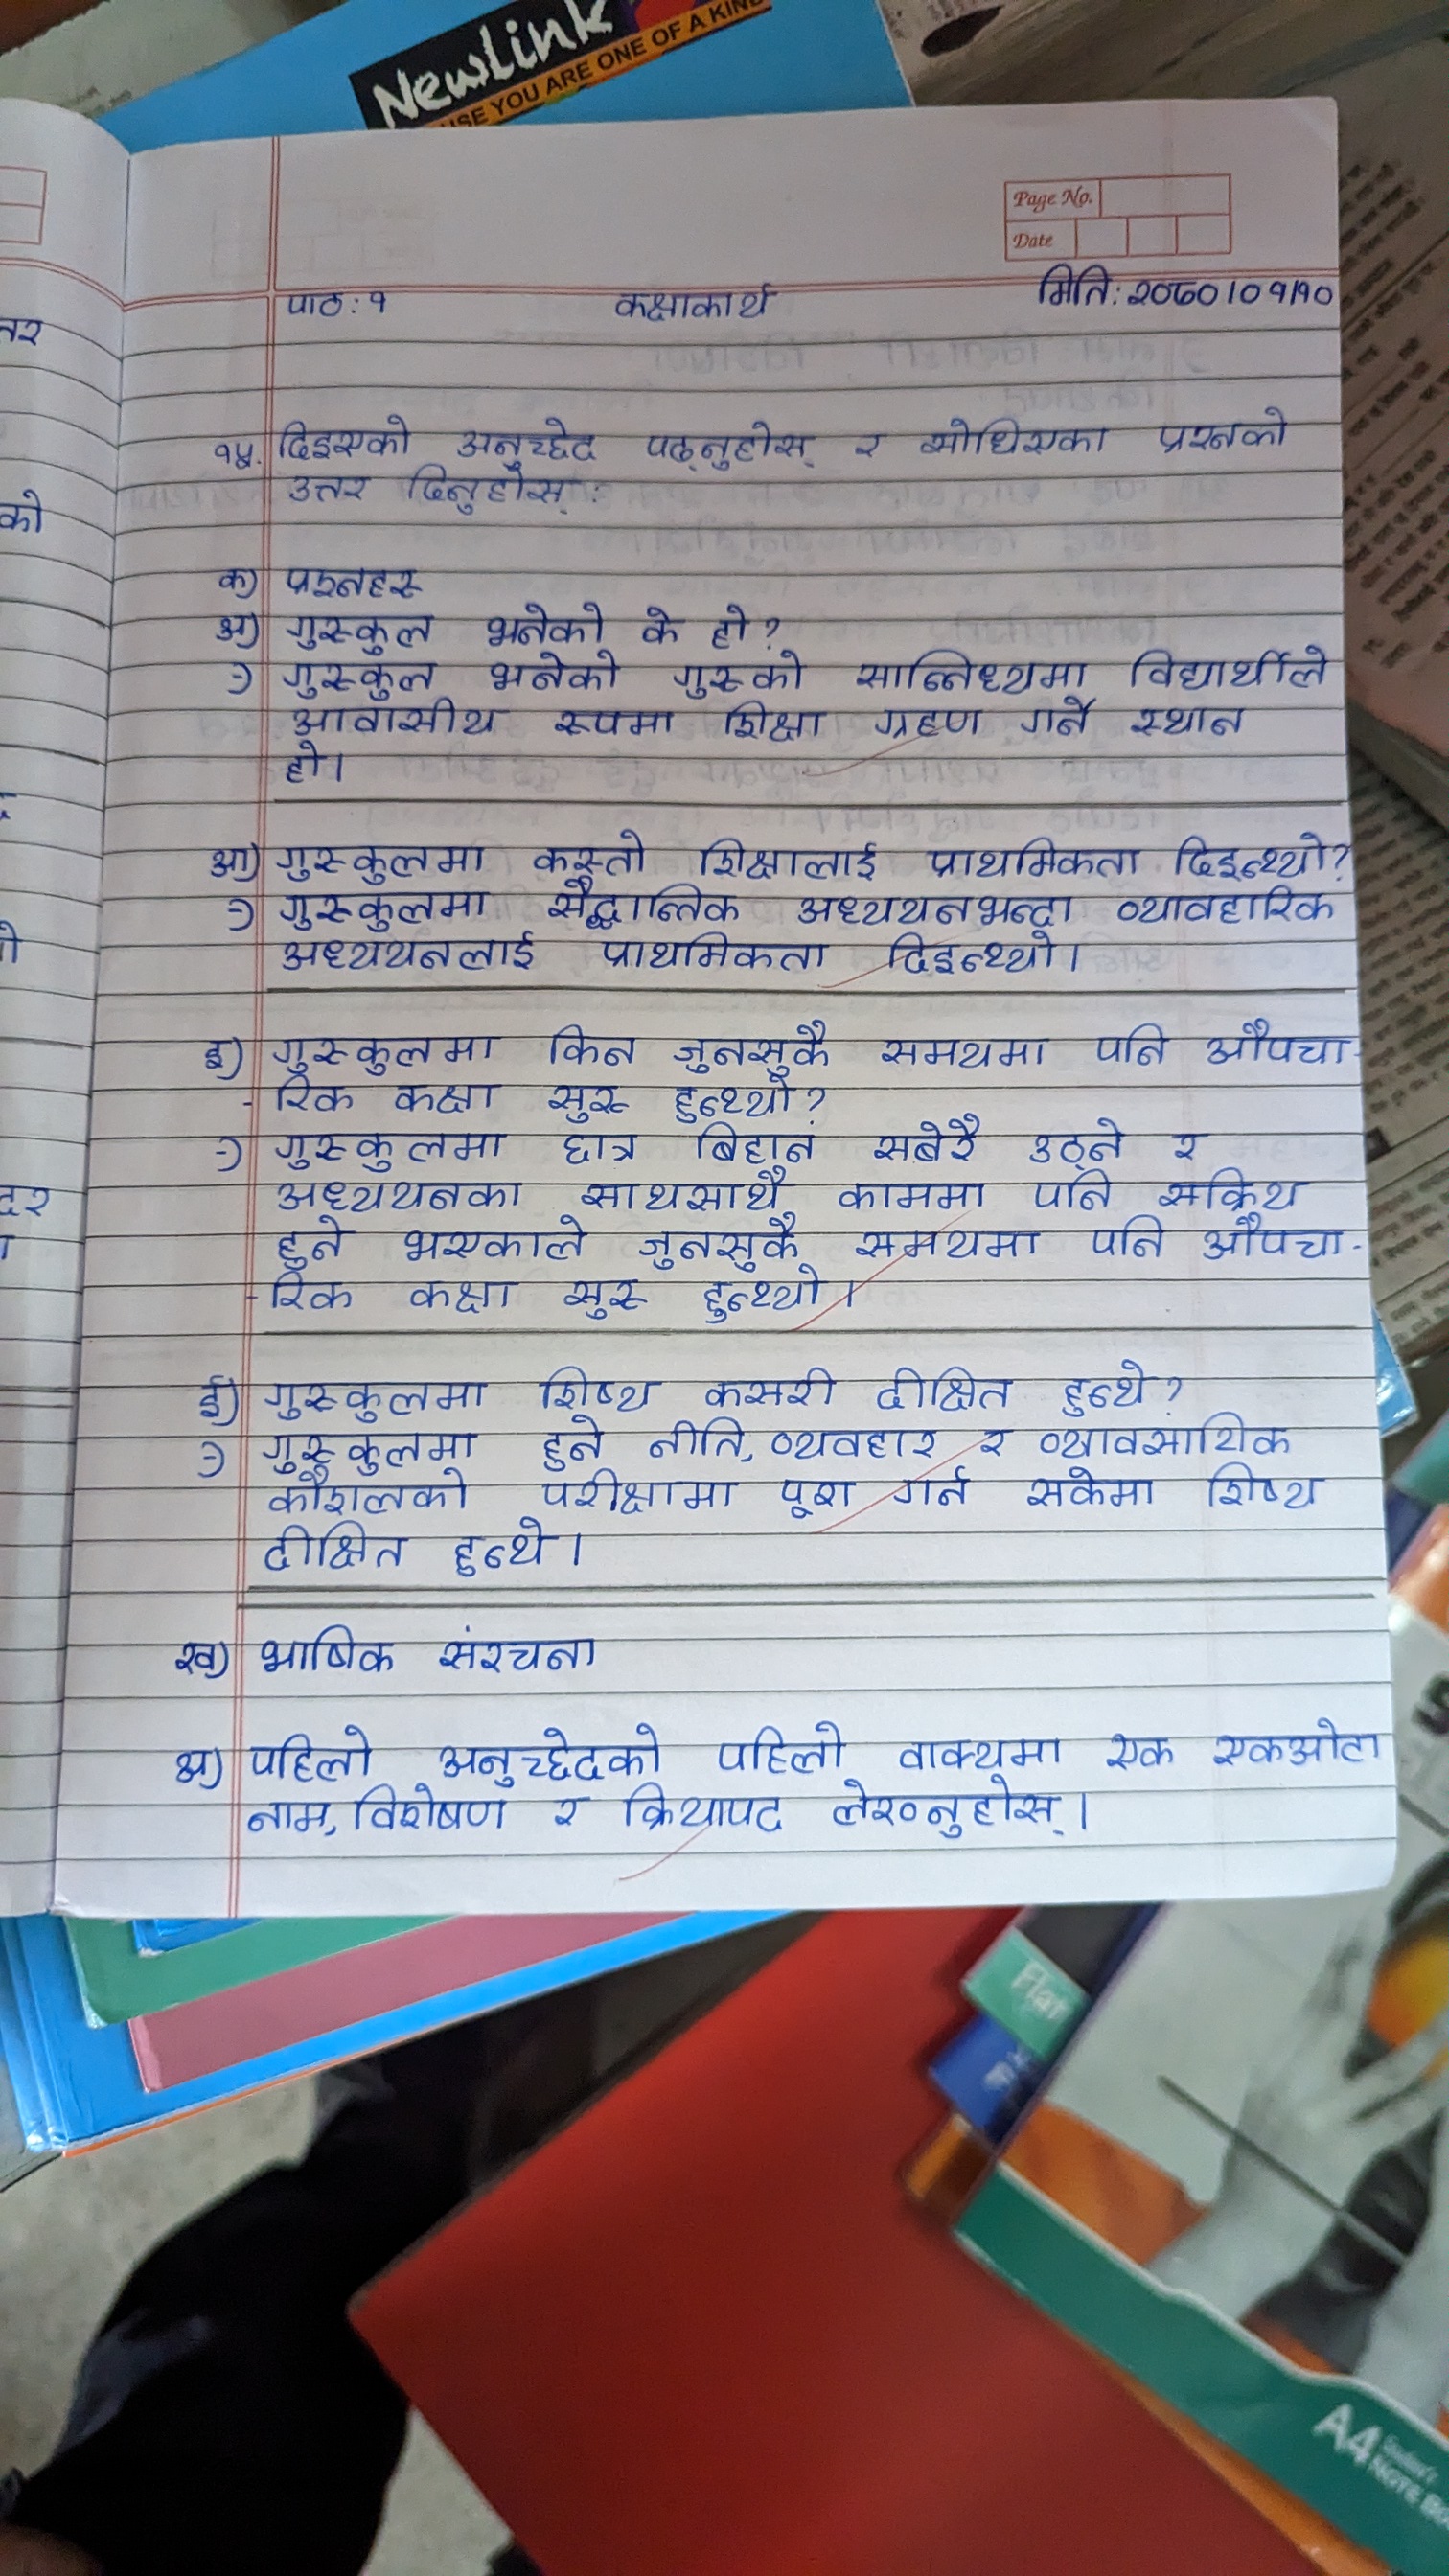 NewLink
USE YOU ARE ONE OF A KIND
Page No.
Date
पाठ: १ कक्षाकार्य मिति: २०८०।०१।१०
१५. दिइएको अनुच्छेद पढ्नुहोस् र सोधिएका प्रश्नको
उत्तर दिनुहोस् :
क) प्रश्नहरू
अ) गुरुकुल भनेको के हो?
-) गुरुकुल भनेको गुरुको सान्निध्यमा विद्यार्थीले
आवासीय रूपमा शिक्षा ग्रहण गर्ने स्थान
हो।
आ) गुरुकुलमा कस्तो शिक्षालाई प्राथमिकता दिइन्थ्यो?
-) गुरुकुलमा सैद्धान्तिक अध्ययनभन्दा व्यावहारिक
अध्ययनलाई प्राथमिकता दिइन्थ्यो।
इ) गुरुकुलमा किन जुनसुकै समयमा पनि औपचा-
-रिक कक्षा सुरु हुन्थ्यो?
-) गुरुकुलमा छात्र बिहान सबेरै उठ्ने र
अध्ययनका साथसाथै काममा पनि सक्रिय
हुने भएकाले जुनसुकै समयमा पनि औपचा-
-रिक कक्षा सुरु हुन्थ्यो।
ई) गुरुकुलमा शिष्य कसरी दीक्षित हुन्थे?
-) गुरुकुलमा हुने नीति, व्यवहार र व्यावसायिक
कौशलको परीक्षामा पूरा गर्न सकेमा शिष्य
दीक्षित हुन्थे।
ख) भाषिक संरचना
अ) पहिलो अनुच्छेदको पहिलो वाक्यमा एक एकओटा
नाम, विशेषण र क्रियापद लेख्नुहोस्।
तर
को
दर
Flar
A4
NOTE